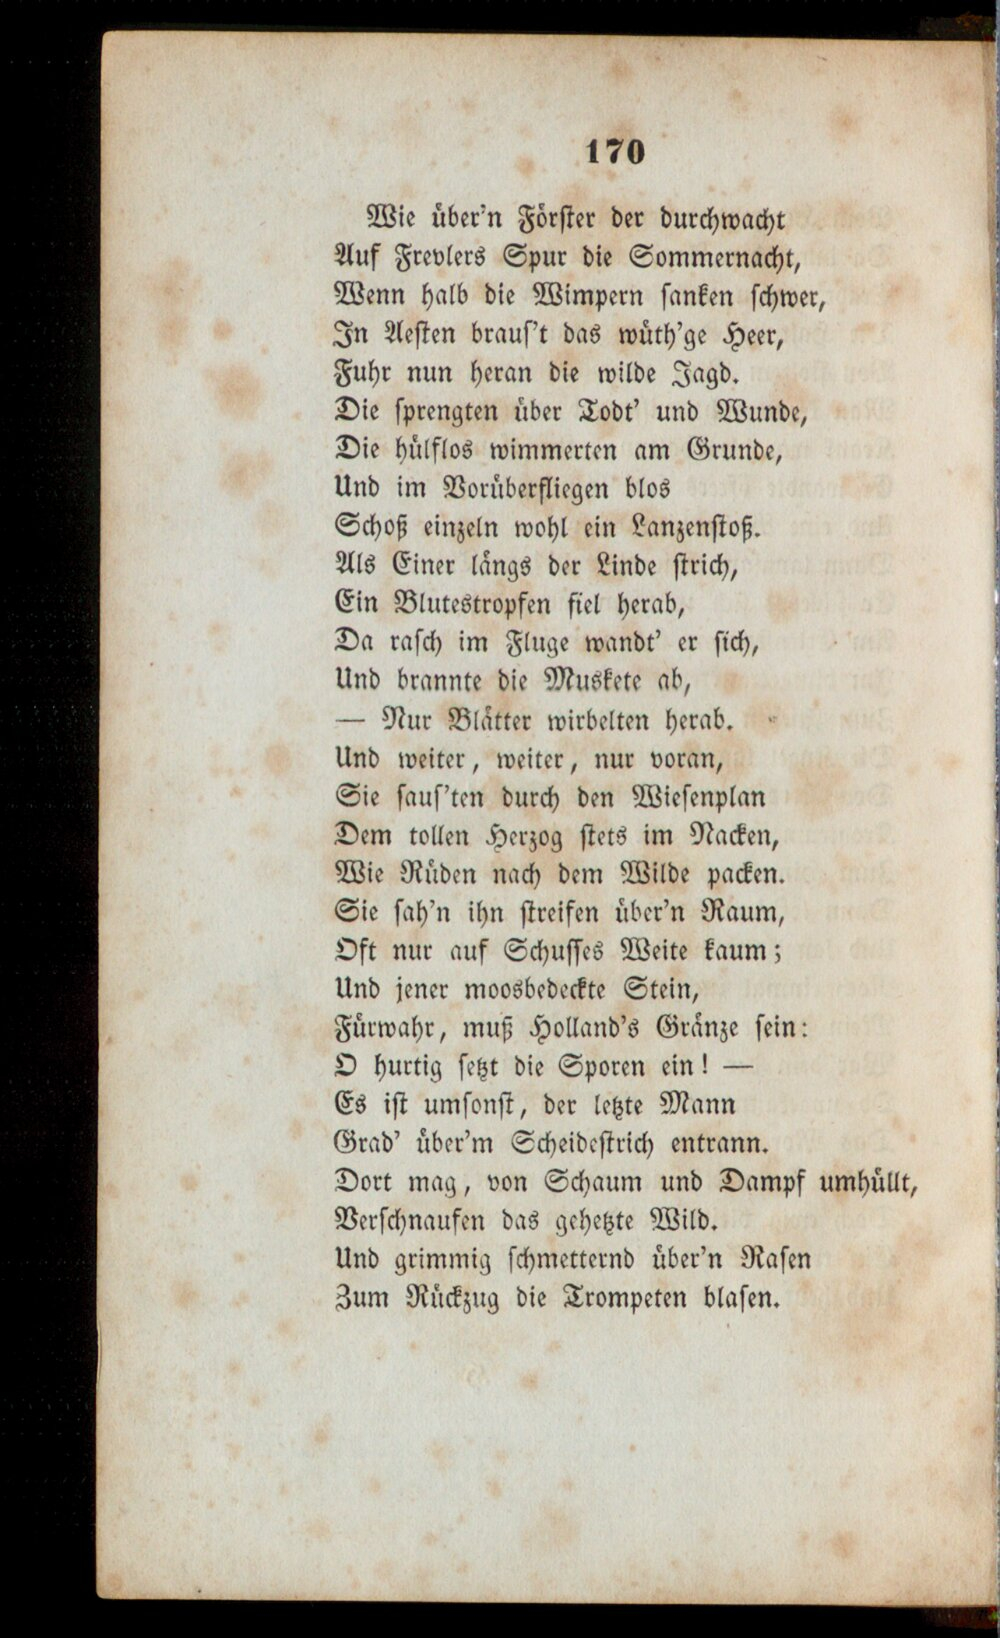 170
Wie über'n Förster der durchwacht
Auf Frevlers Spur die Sommernacht,
Wenn halb die Wimpern sanken schwer,
In Aesten braus't das wüth'ge Heer,
Fuhr nun heran die wilde Jagd.
Die sprengten über Todt' und Wunde,
Die hülflos wimmerten am Grunde,
Und im Vorüberfliegen blos
Schoß einzeln wohl ein Lanzenstoß.
Als Einer längs der Linde strich,
Ein Blutestropfen fiel herab,
Da rasch im Fluge wandt' er sich,
Und brannte die Muskete ab,
— Nur Blätter wirbelten herab.
Und weiter, weiter, nur voran,
Sie saus'ten durch den Wiesenplan
Dem tollen Herzog stets im Nacken,
Wie Rüden nach dem Wilde packen.
Sie sah'n ihn streifen über'n Raum,
Oft nur auf Schusses Weite kaum;
Und jener moosbedeckte Stein,
Fürwahr, muß Holland's Gränze sein:
O hurtig setzt die Sporen ein! —
Es ist umsonst, der letzte Mann
Grad' über'm Scheidestrich entrann.
Dort mag, von Schaum und Dampf umhüllt,
Verschnaufen das gehetzte Wild.
Und grimmig schmetternd über'n Rasen
Zum Rückzug die Trompeten blasen.